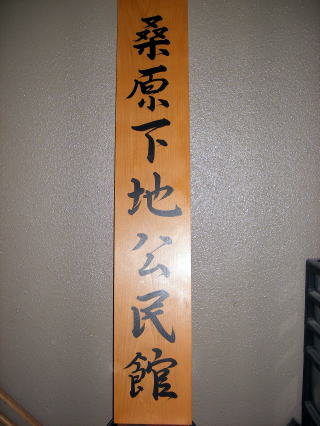 桑原下地公民館